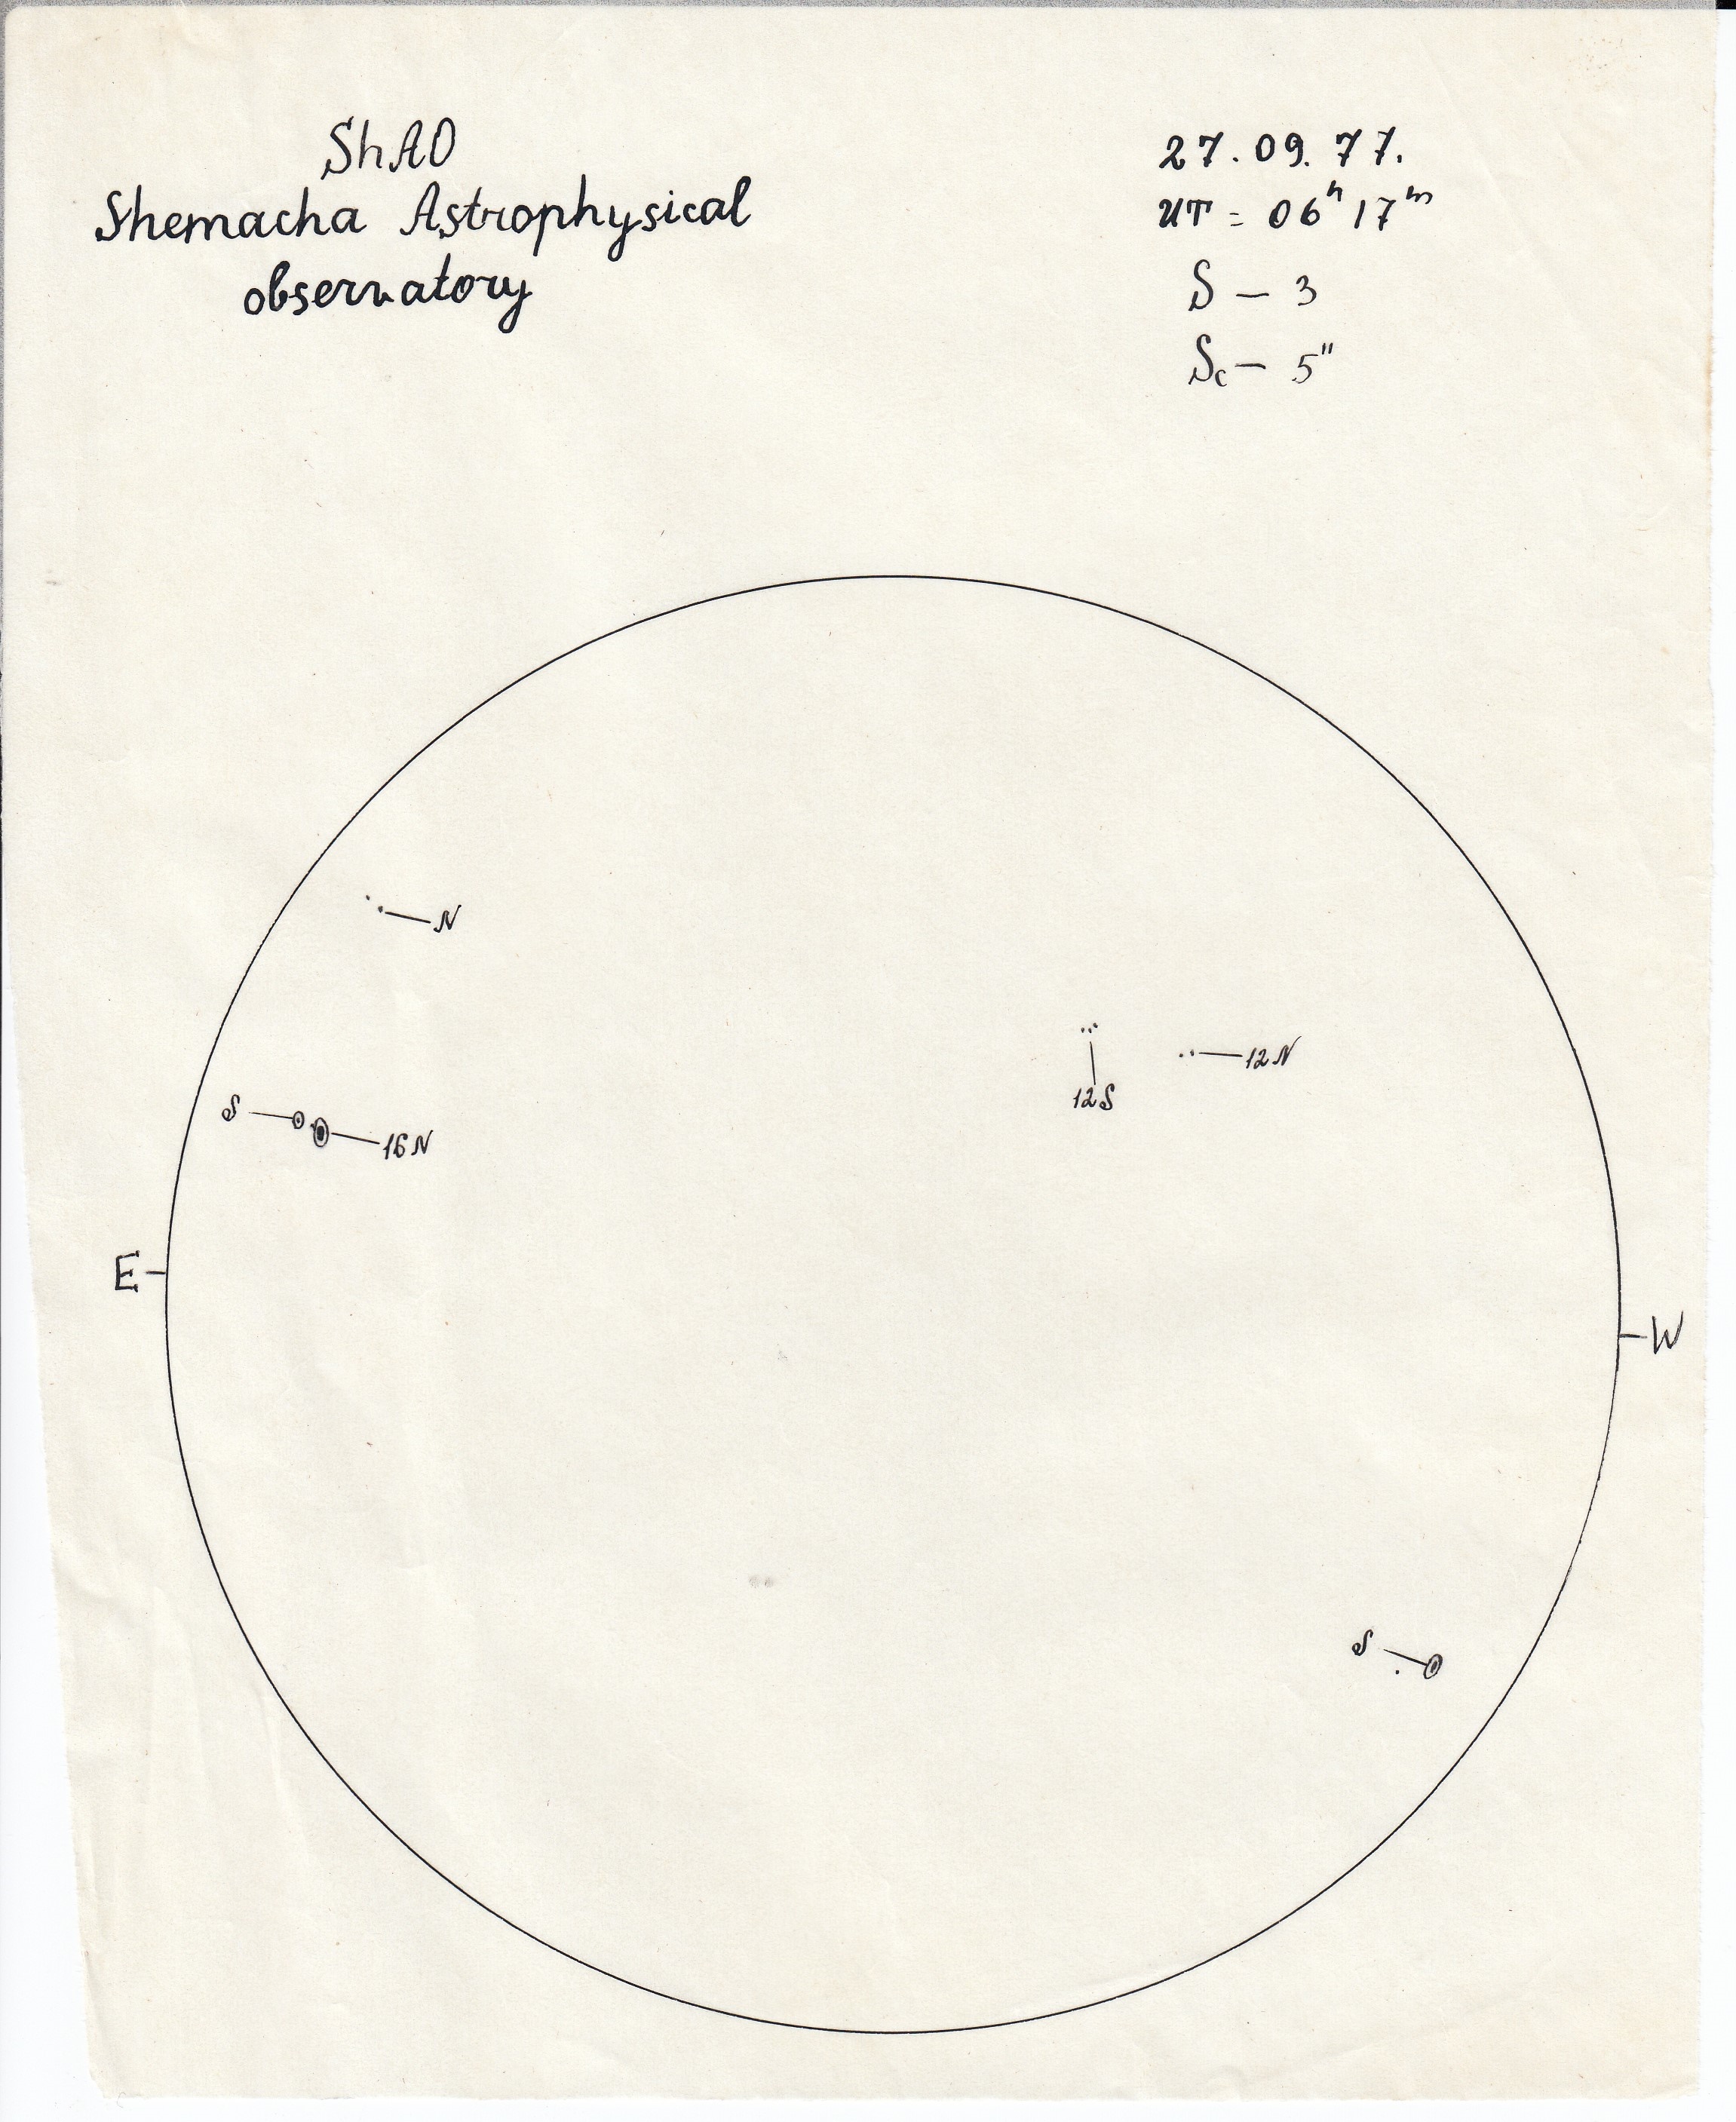 ShAO
Shemacha Astrophysical
observatory
27.09.77.
UT = 06h 17m
S — 3
Sc — 5"
N
12N
12S
S
16N
E
W
S